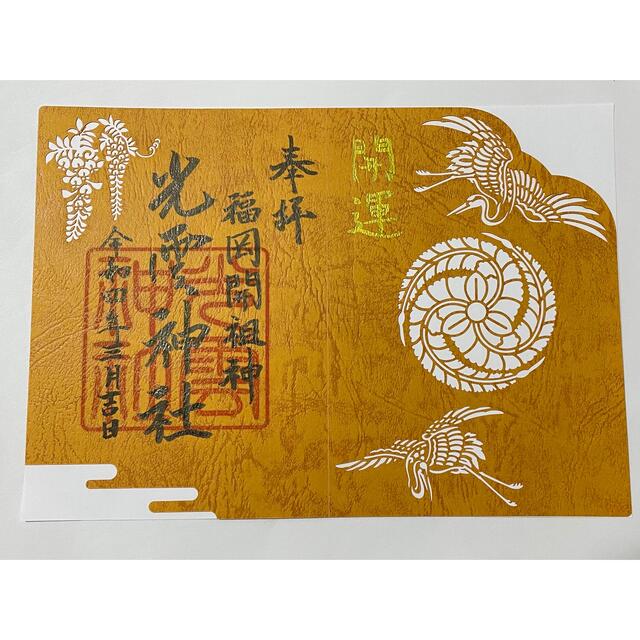 開運
奉拝
福岡開祖神
光雲神社
令和四年十二月吉日